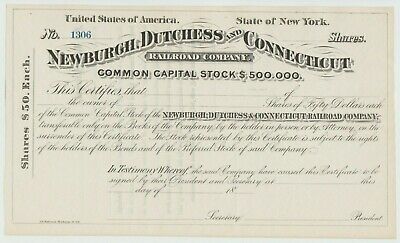 United States of America. State of New York.
No. 1306 Shares.
NEWBURGH, DUTCHESS AND CONNECTICUT
RAILROAD COMPANY.
COMMON CAPITAL STOCK $500.000.
This Certifies, that
the owner of Shares of Fifty Dollars each
of the Common Capital Stock of the NEWBURGH, DUTCHESS & CONNECTICUT RAILROAD COMPANY,
transferable only on the Books of the Company, by the holder in person or by Attorney, on
surrender of this Certificate. The Stock represented by this Certificate is subject to the rights
of the holders of the Bonds and of the Preferred Stock of said Company.
In Testimony Whereof, the said Company have caused this Certificate to be
signed by their President and Secretary at this
day of 18
Secretary President
Shares $50. Each.